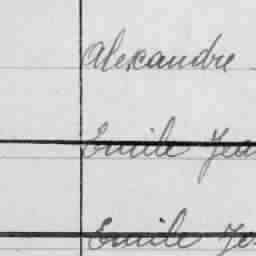 Alexandre
Emile Jea
Emile Je